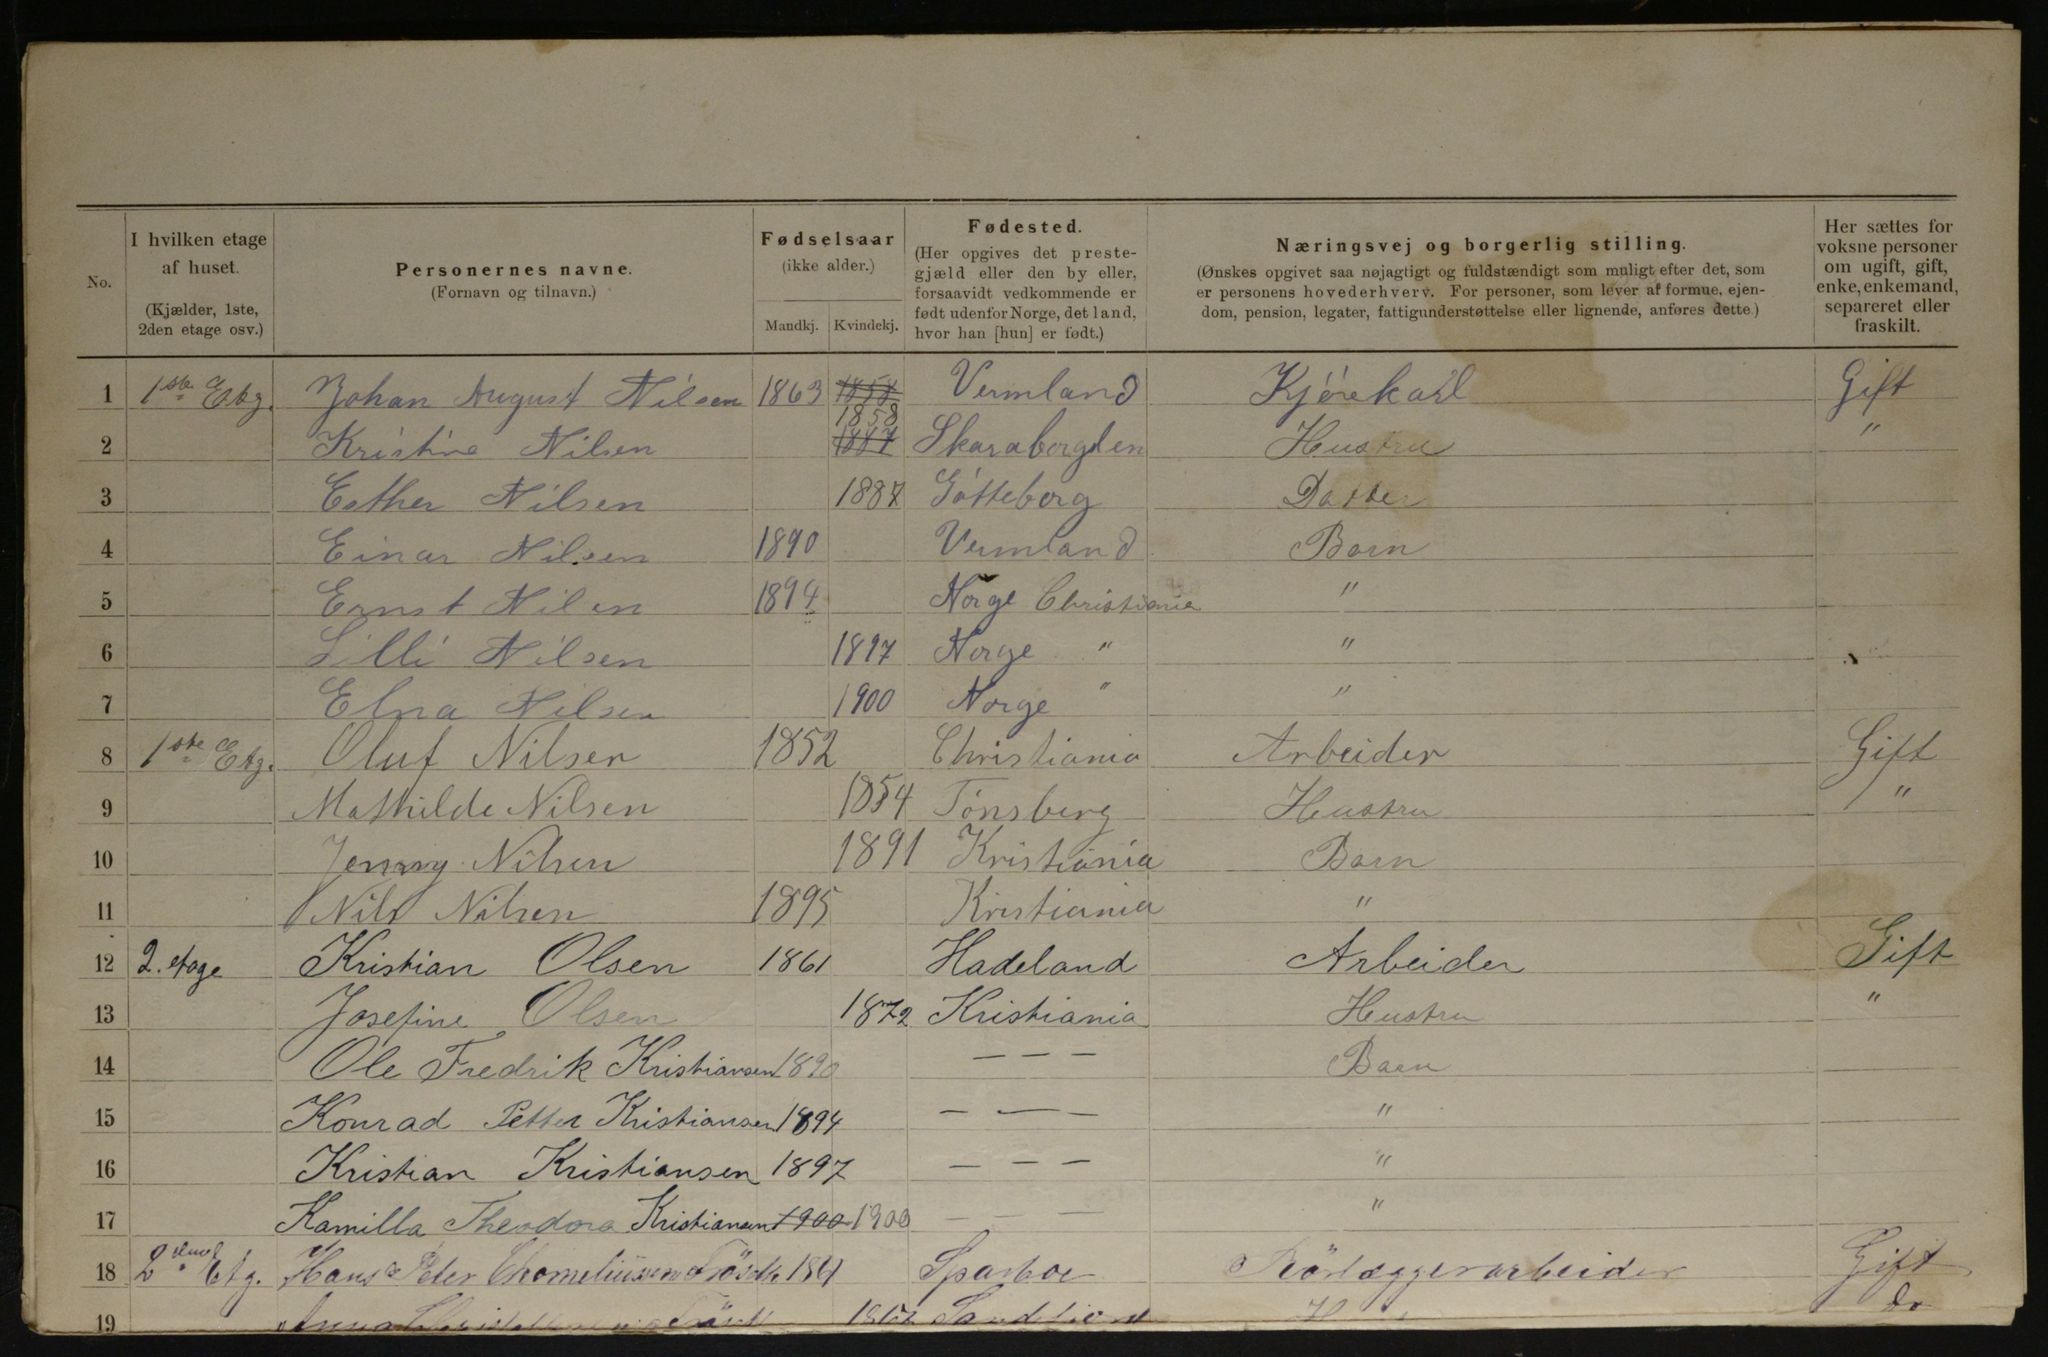 No.
I hvilken etage
af huset.
(Kjælder, 1ste,
2den etage osv.)
Personernes navne.
(Fornavn og tilnavn.)
Fødselsaar
(ikke alder.)
Mandkj. Kvindekj.
Fødested.
(Her opgives det preste-
gjæld eller den by eller,
forsaavidt vedkommende er
født udenfor Norge, det land,
hvor han [hun] er født.)
Næringsvej og borgerlig stilling.
(Ønskes opgivet saa nøjagtigt og fuldstændigt som muligt efter det, som
er personens hovederhverv. For personer, som lever af formue, ejen-
dom, pension, legater, fattigunderstøttelse eller lignende, anføres dette.)
Her sættes for
voksne personer
om ugift, gift,
enke, enkemand,
separeret eller
fraskilt.
1 1ste Etg. Johan August Nilsen 1863 1858 Vermland Kjørekarl Gift
2 Kristine Nilsen 1858 1887 Skaraborglen Hustru "
3 Esther Nilsen 1887 Götteborg Datter
4 Einar Nilsen 1890 Vermland Barn
5 Ernst Nilsen 1894 Norge Christiania "
6 Lilli Nilsen 1897 Norge " "
7 Elna Nilsen 1900 Norge " "
8 1ste Etg. Oluf Nilsen 1852 Christiania Arbeider Gift
9 Mathilde Nilsen 1854 Tönsberg Hustru "
10 Jenny Nilsen 1891 Kristiania Barn
11 Nils Nilsen 1895 Kristiania "
12 2. etage Kristian Olsen 1861 Hadeland Arbeider Gift
13 Josefine Olsen 1872 Kristiania Hustru "
14 Ole Fredrik Kristiansen 1890 — — — Barn
15 Konrad Petter Kristiansen 1894 — — — "
16 Kristian Kristiansen 1897 — — — "
17 Kamilla Theodora Kristiansen 1900 1900 — — — "
18 2den Etg. Hans Peter 1861 Sparboe Rörlæggerarbeider Gift
19 Anna do